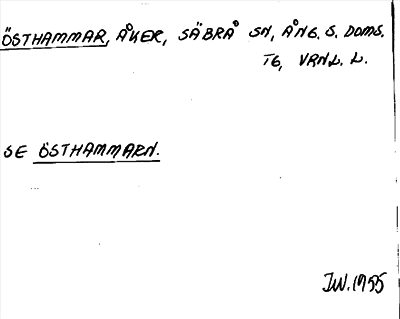 ÖSTHAMMAR, ÅKER, SÄBRÅ SN, ÅNG. S. DOMS.
TG, VRNL. L.
SE ÖSTHAMMARN.
JW. 1955